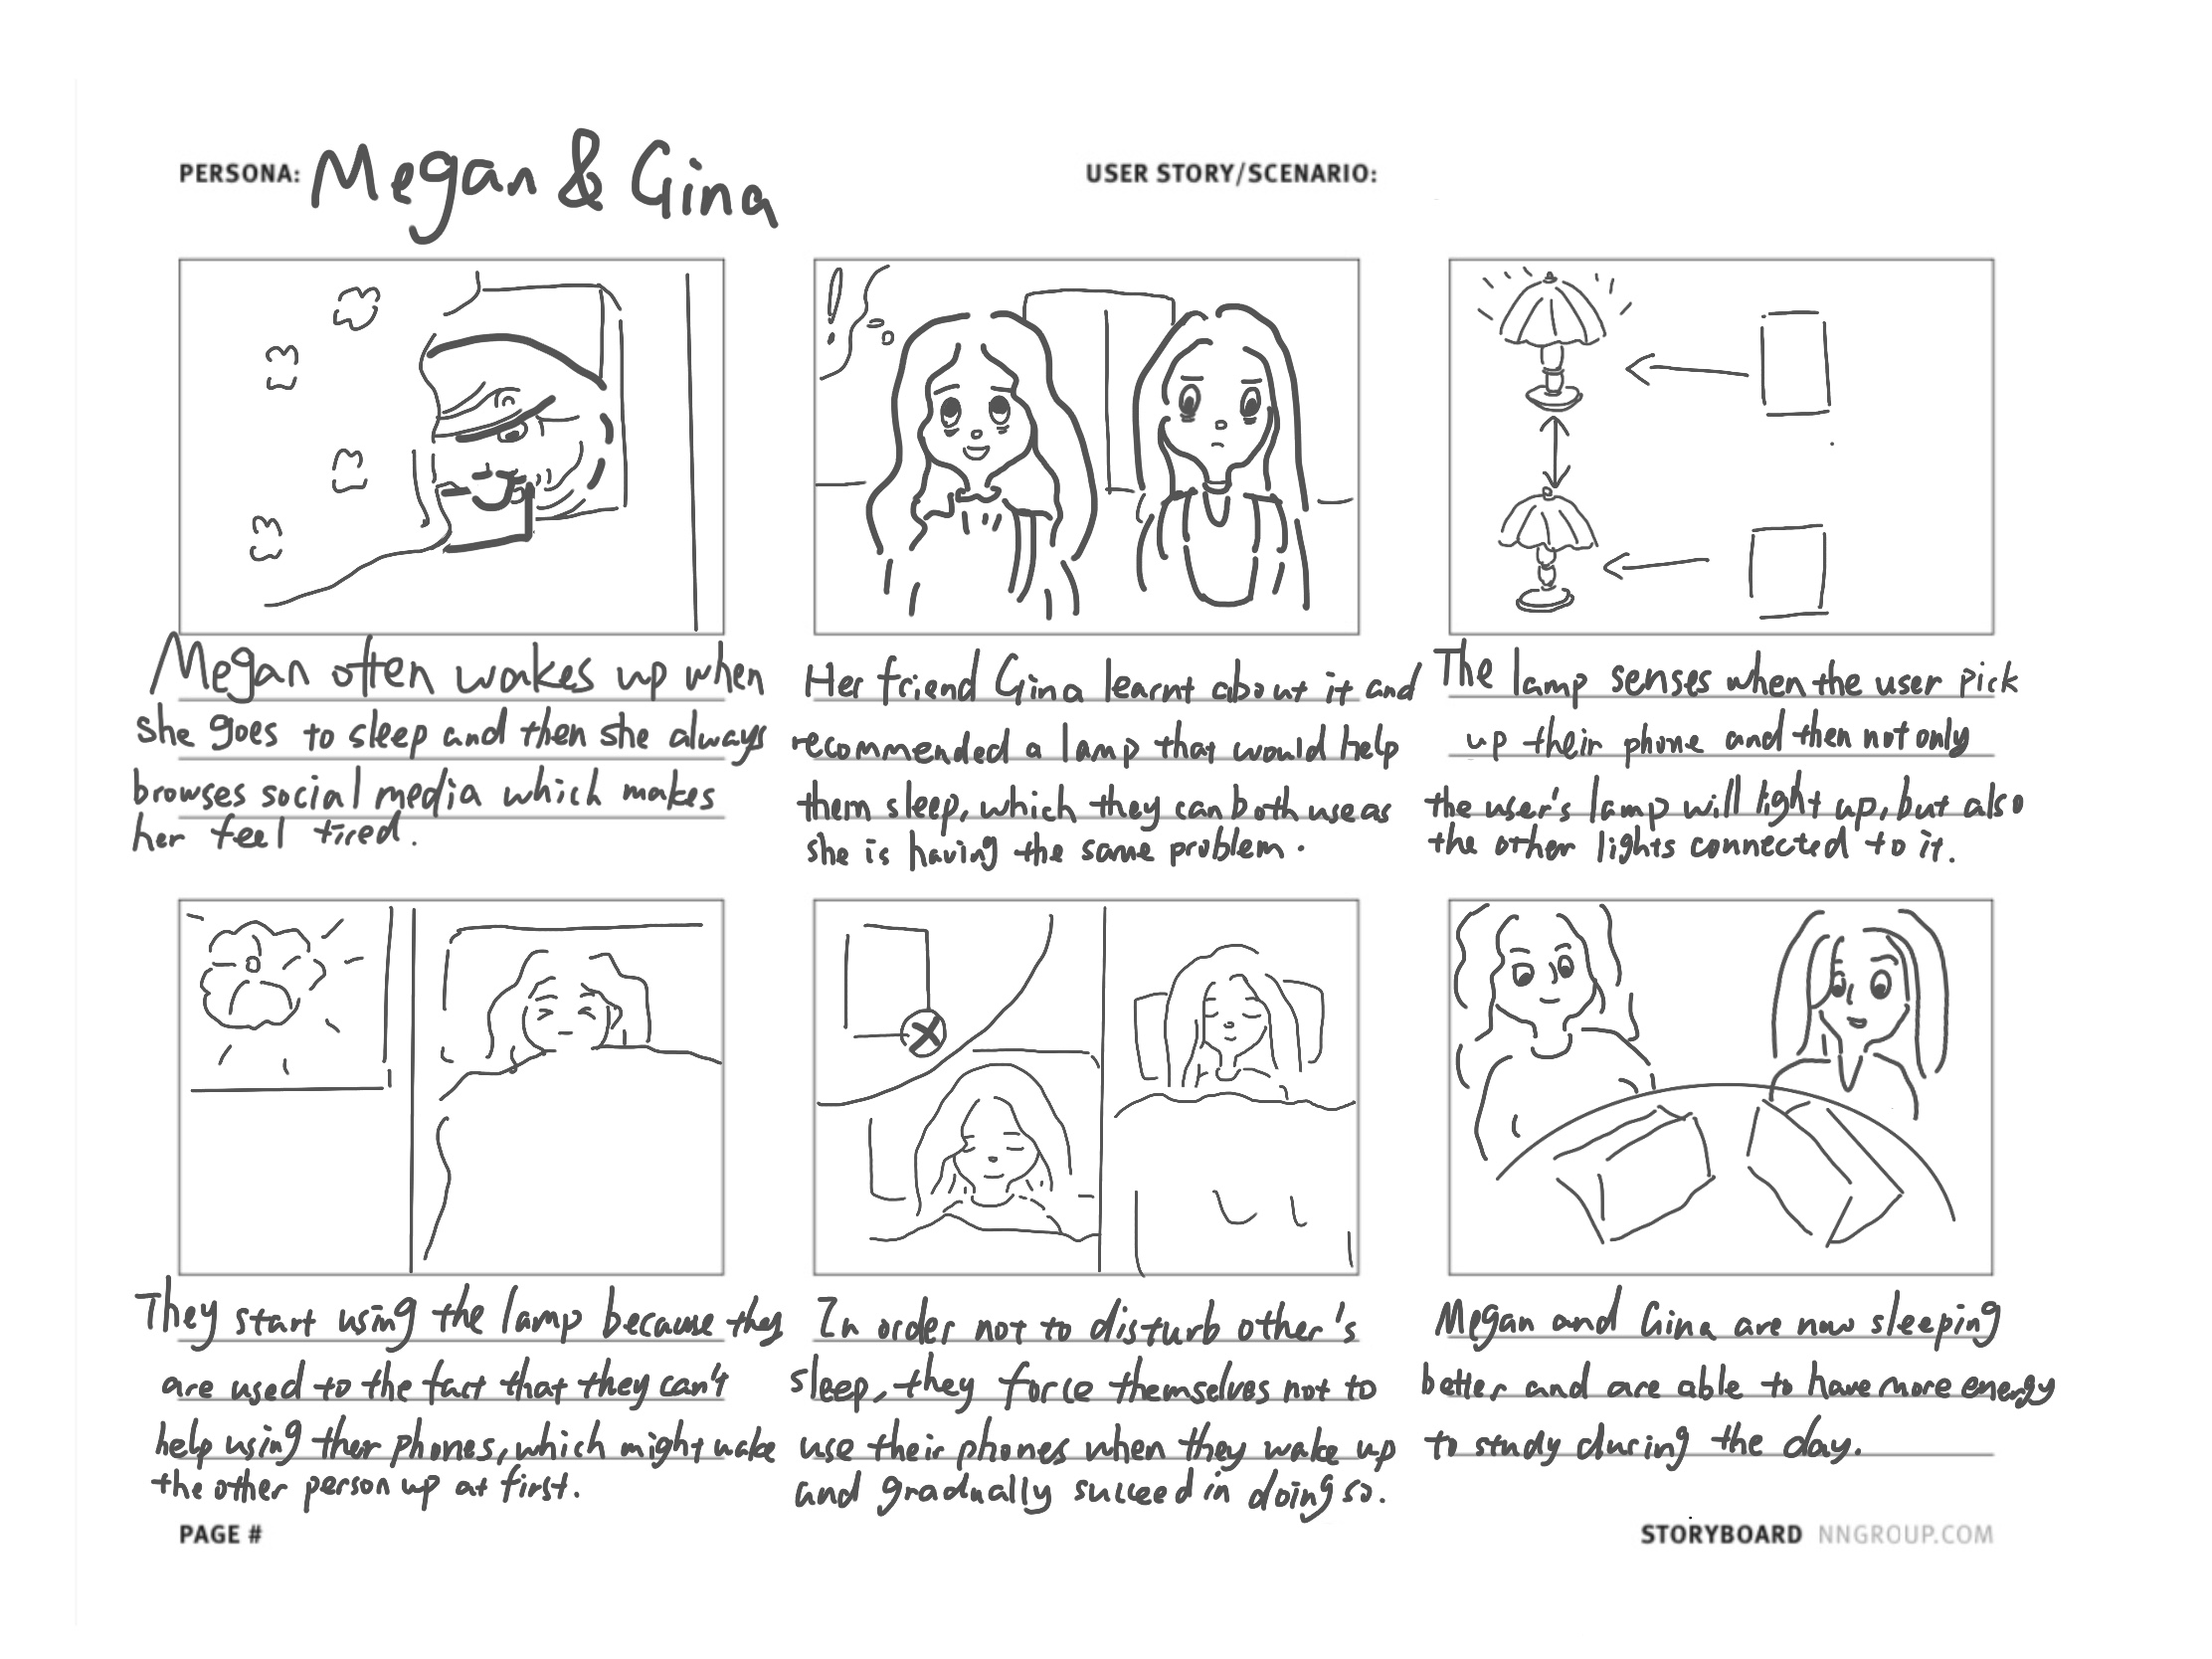 PERSONA: Megan & Gina
USER STORY/SCENARIO:
Megan often wakes up when
she goes to sleep and then she always
browses social media which makes
her feel tired.
Her friend Gina learnt about it and
recommended a lamp that would help
them sleep, which they can both use as
she is having the same problem.
The lamp senses when the user pick
up their phone and then not only
the user's lamp will light up, but also
the other lights connected to it.
They start using the lamp because they
are used to the fact that they can't
help using ther phones, which might wake
the other person up at first.
In order not to disturb other's
sleep, they force themselves not to
use their phones when they wake up
and gradually succeed in doing so.
Megan and Gina are now sleeping
better and are able to have more energy
to study during the day.
PAGE #
STORYBOARD NNGROUP.COM